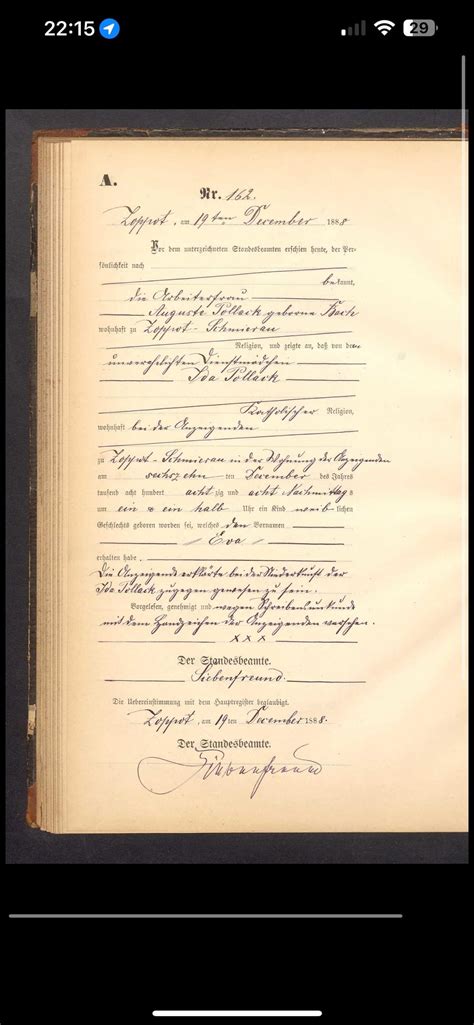 22:15
29
A.
Nr. 162.
Zoppot, am 19ten December 1888
Vor dem unterzeichneten Standesbeamten erschien heute, der Per-
sönlichkeit nach
bekannt,
die Arbeiterfrau
Auguste Pollack geborne
wohnhaft zu Zoppot - Schmierau
Religion, und zeigte an, daß von der
unverehelichten Dienstmädchen
Ida Pollack
Katholischer Religion,
wohnhaft bei der Anzeigenden
zu Zoppot - Schmierau in der Wohnung der Anzeigenden
am sechszehn ten December des Jahres
tausend acht hundert achtzig und acht Nachmittags
um ein & ein halb Uhr ein Kind weiblichen
Geschlechts geboren worden sei, welches den Vornamen
Eva
erhalten habe.
Die Anzeigende erklärte bei der Niederkunft der
Ida Pollack zugegen gewesen zu sein.
Vorgelesen, genehmigt und wegen Schreibensunkunde
mit dem Handzeichen der Anzeigenden versehen.
x x x
Der Standesbeamte.
Siebenfreund.
Die Uebereinstimmung mit dem Hauptregister beglaubigt.
Zoppot, am 19ten December 1888.
Der Standesbeamte.
Siebenfreund